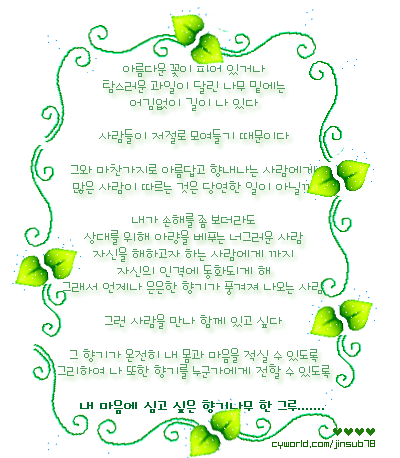 아름다운 꽃이 피어 있거나
탐스러운 과일이 달린 나무 밑에는
어김없이 길이 나 있다
사람들이 저절로 모여들기 때문이다
그와 마찬가지로 아름답고 향내나는 사람에게
많은 사람이 따르는 것은 당연한 일이 아닐까
내가 손해를 좀 보더라도
상대를 위해 아량을 베푸는 너그러운 사람
자신을 해하고자 하는 사람에게 까지
자신의 인격에 동화되게 해
그래서 언제나 은은한 향기가 풍겨져 나오는 사람
그런 사람을 만나 함께 있고 싶다
그 향기가 온전히 내 몸과 마음을 적실 수 있도록
그리하여 나 또한 향기를 누군가에게 전할 수 있도록
내 마음에 심고 싶은 향기나무 한 그루.......
♥♥♥♥
cyworld.com/jinsub78